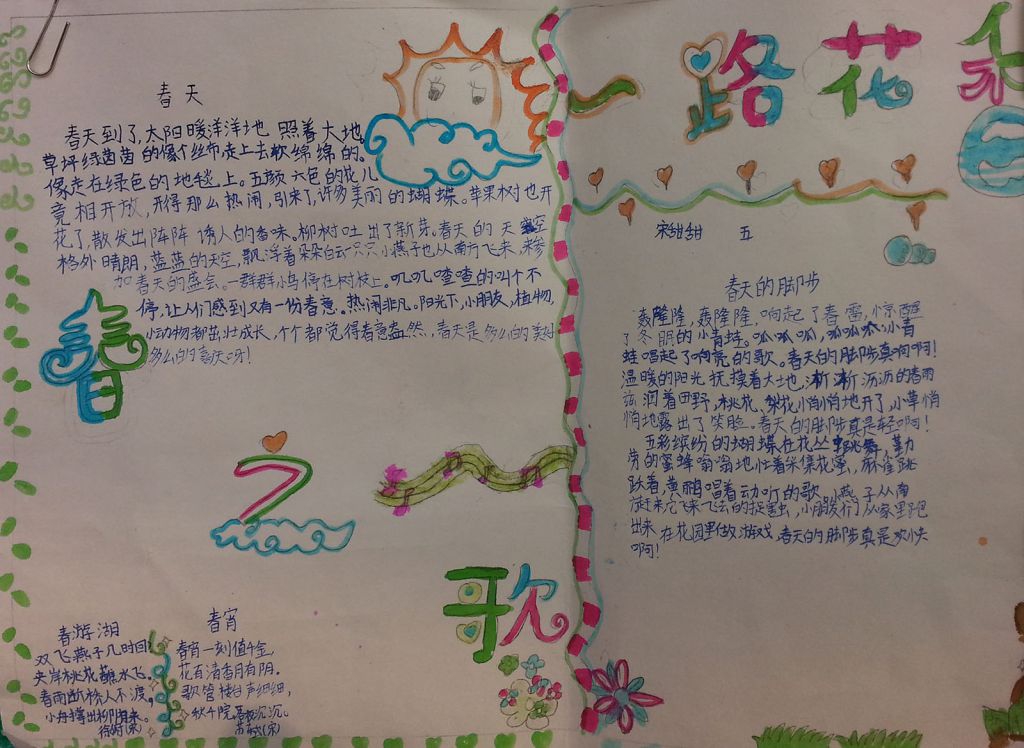 春天
春天到了,太阳暖洋洋地 照着大地。
草坪绿茵茵的像个丝巾,走上去软绵绵的。
像走在绿色的地毯上。五颜六色的花儿
竞相开放,开得那么热闹,引来了许多美丽的蝴蝶。苹果树也开
花了,散发出阵阵诱人的香味。柳树吐出了新芽。春天的天空
格外晴朗,蓝蓝的天空,飘浮着朵朵白云只只小燕子也从南方飞来,来参
加春天的盛会。一群群小鸟停在树枝上。叽叽喳喳的叫个不
停,让人们感到又有一份春意。热闹非凡。阳光下,小朋友,植物,
小动物都茁壮成长,个个都觉得春意盎然,春天是多么的美好
多么的春天呀!
春
之
歌
春游湖
双飞燕子几时回?
夹岸桃花蘸水飞。
春雨断桥人不渡,
小舟撑出柳阴来。
徐俯(宋)
春宵
春宵一刻值千金,
花有清香月有阴。
歌管楼台声细细,
秋千院落夜沉沉。
苏轼(宋)
一路花香
宋甜甜 五
春天的脚步
轰隆隆,轰隆隆,响起了春雷,惊醒
了冬眠的小青蛙。呱呱呱,呱呱呱,小青
蛙唱起了响亮的歌。春天的脚步真响啊!
温暖的阳光抚摸着大地,淅淅沥沥的春雨
滋润着田野,桃花、梨花悄悄地开了,小草悄
悄地露出了笑脸。春天的脚步真是轻啊!
五彩缤纷的蝴蝶在花丛中跳舞,勤
劳的蜜蜂嗡嗡地忙着采集花蜜,麻雀跳
跃着,黄鹂唱着动听的歌,小燕子从南
赶来,它飞来飞去的捉害虫,小朋友们从家里跑
出来,在花园里做游戏,春天的脚步真是欢快
啊!